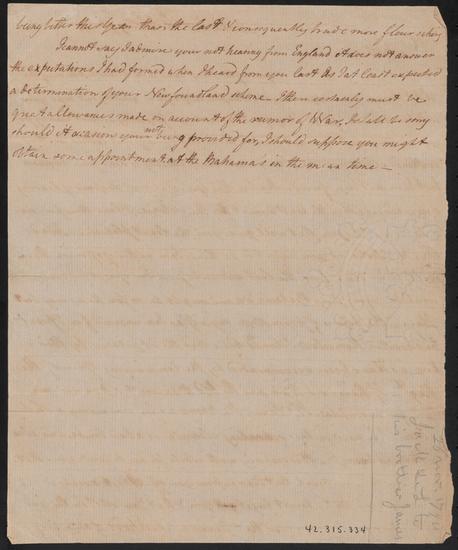 being better this Year than the last & consequently made more flour
Jeannot say I admire your not hearing from England it does not answer
the expectations I had formed when I heard from you last as I at least expected
a determination of your Newfoundland scheme. there certainly must be
great allowances made on account of the rumor of War, I shall be sorry
should it occasion your not being provided for, I should suppose you might
obtain some appointment at the Bahama's in the mean time —
Jack
his brother James
42.315.334